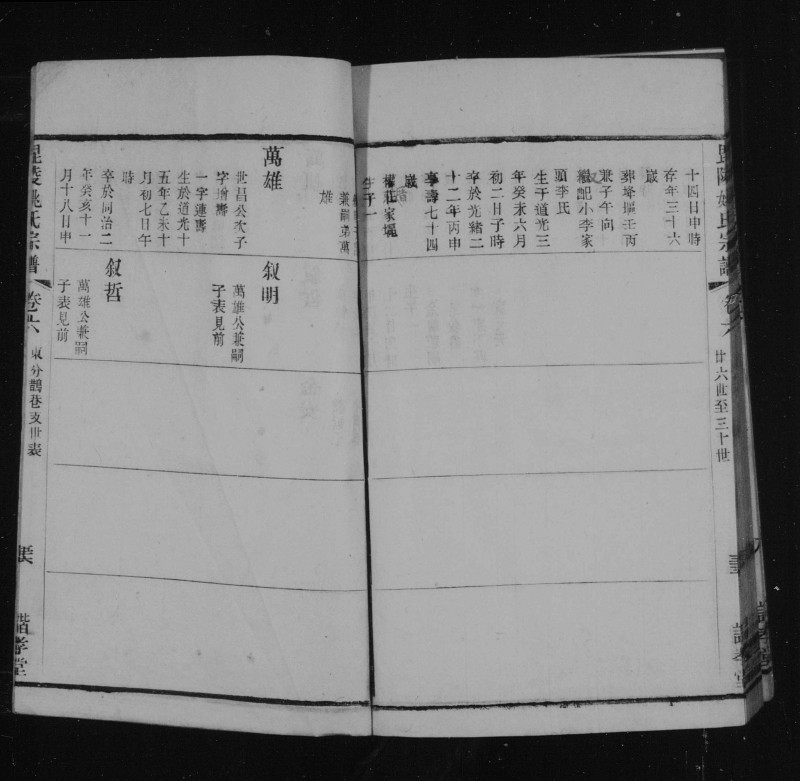 十四日申時
存年三十六
歲
葬埄堰壬丙
兼子午向
繼配小李家
頭李氏
生于道光三
年癸未六月
初二日子時
卒於光緒二
十二年丙申
享壽七十四
歲
生子一
兼嗣弟萬
雄
萬雄
世昌公次子
字增壽
一字蓮壽
生於道光十
五年乙未十
月初七日午
時
卒於同治二
年癸亥十一
月十八日申
叙明
萬雄公兼嗣
子表見前
叙哲
萬雄公兼嗣
子表見前
廿六世至三十世
毘陵姚氏宗譜
卷六
東分鸛巷支世表
諧孝堂